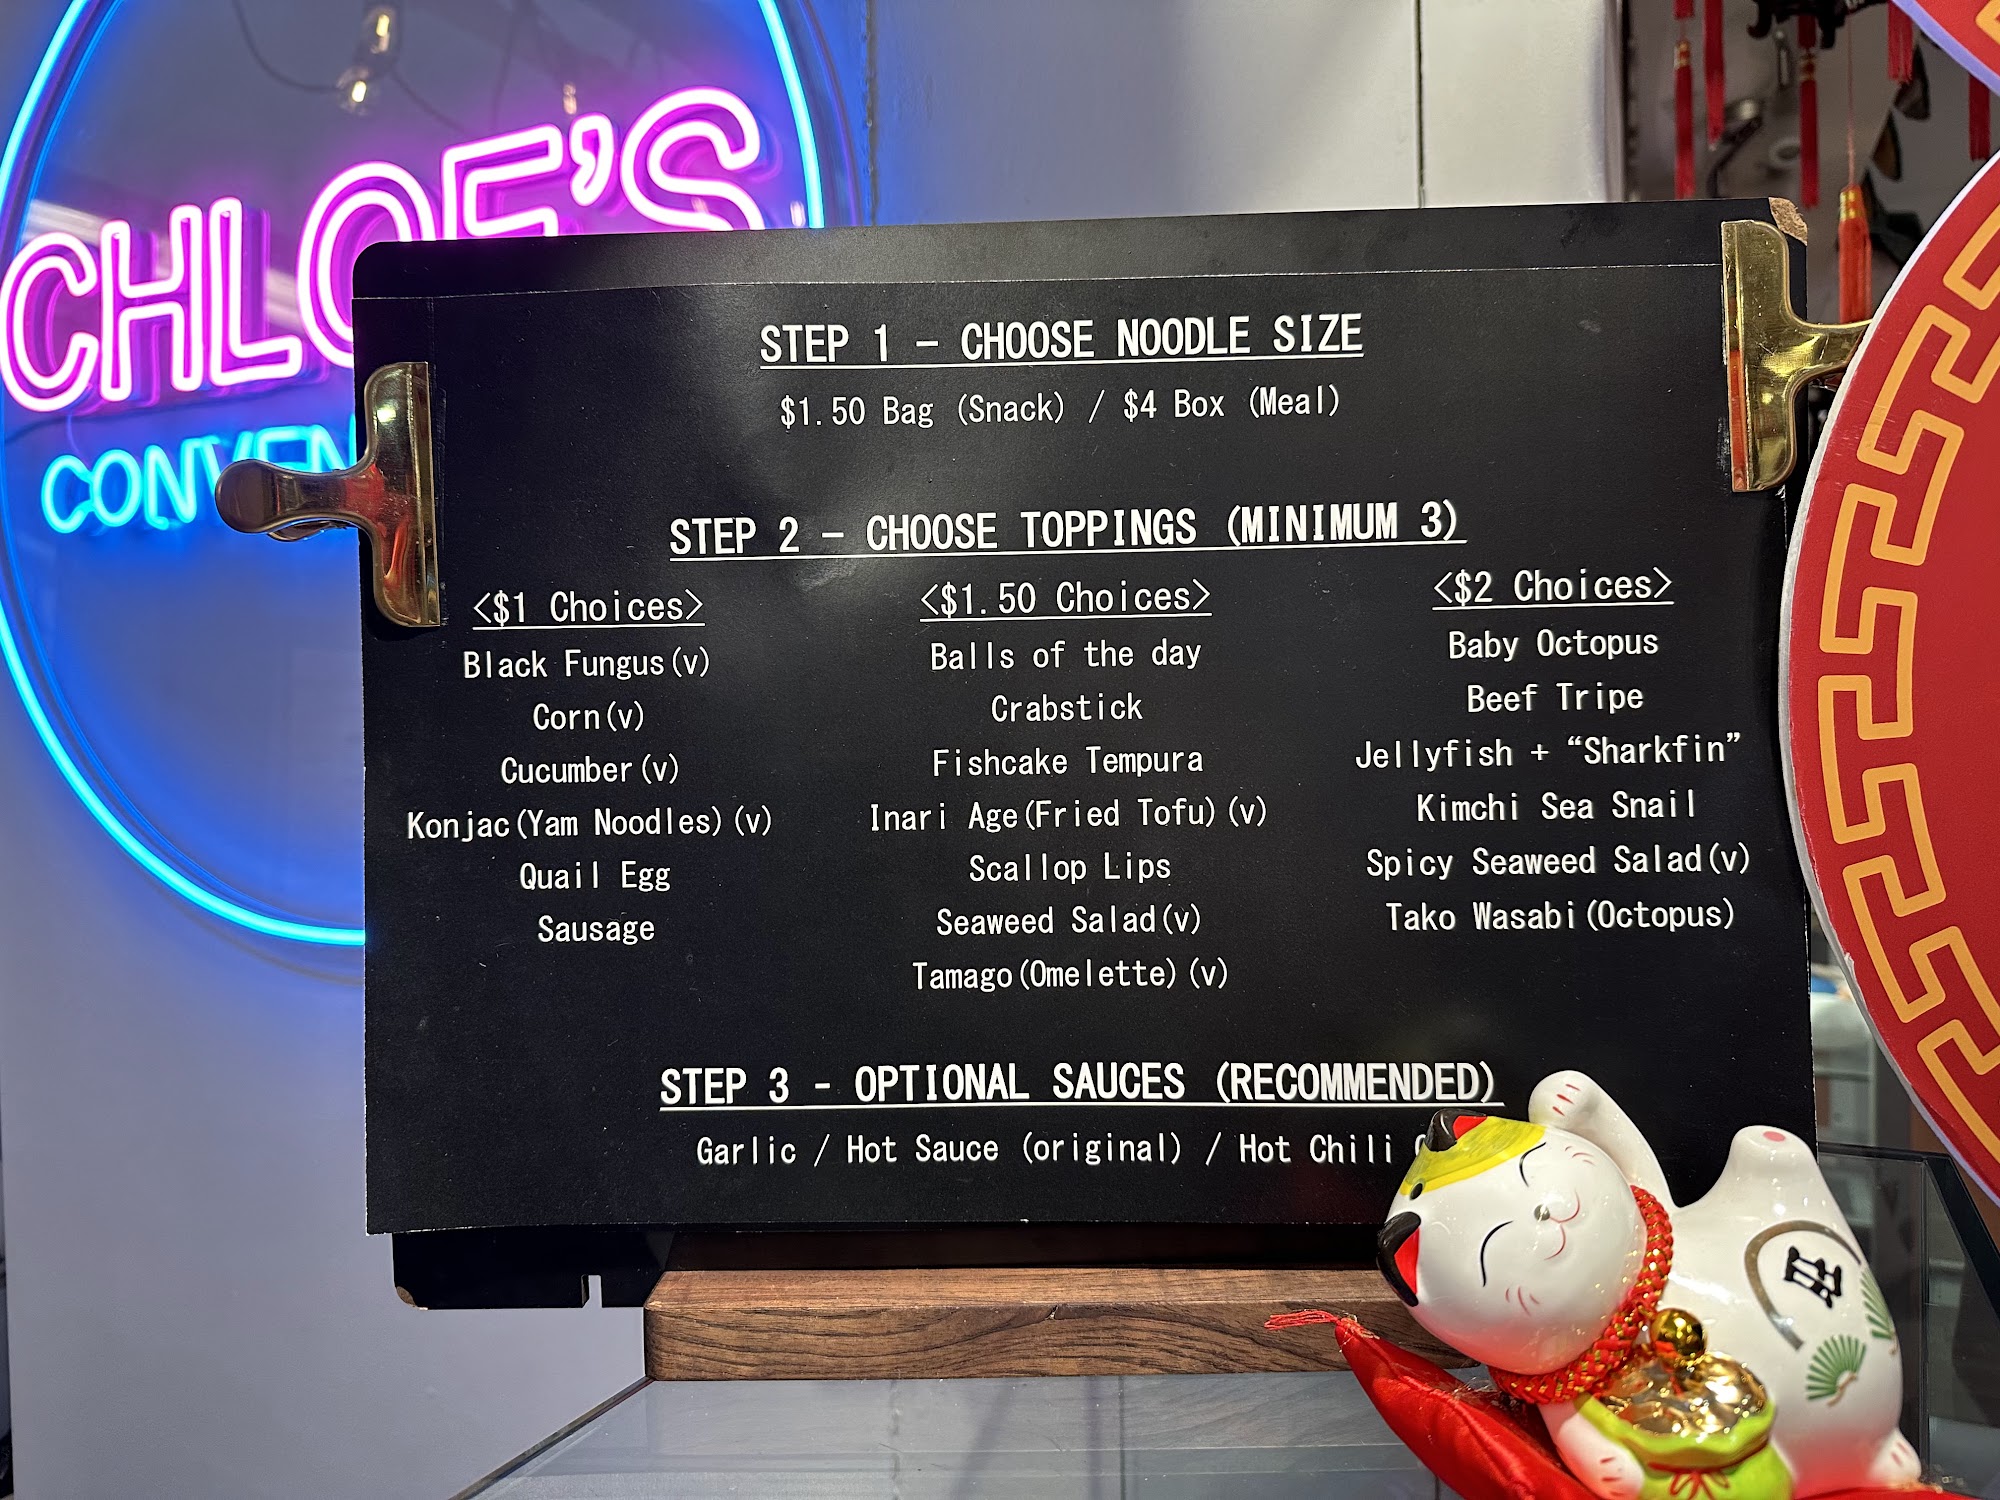 CHLOE'S
STEP 1 – CHOOSE NOODLE SIZE
$1.50 Bag (Snack) / $4 Box (Meal)
STEP 2 – CHOOSE TOPPINGS (MINIMUM 3)
<$1 Choices>
Black Fungus(v)
Corn(v)
Cucumber(v)
Konjac(Yam Noodles)(v)
Quail Egg
Sausage
<$1.50 Choices>
Balls of the day
Crabstick
Fishcake Tempura
Inari Age(Fried Tofu)(v)
Scallop Lips
Seaweed Salad(v)
Tamago(Omelette)(v)
<$2 Choices>
Baby Octopus
Beef Tripe
Jellyfish + “Sharkfin”
Kimchi Sea Snail
Spicy Seaweed Salad(v)
Tako Wasabi(Octopus)
STEP 3 - OPTIONAL SAUCES (RECOMMENDED)
Garlic / Hot Sauce (original) / Hot Chili